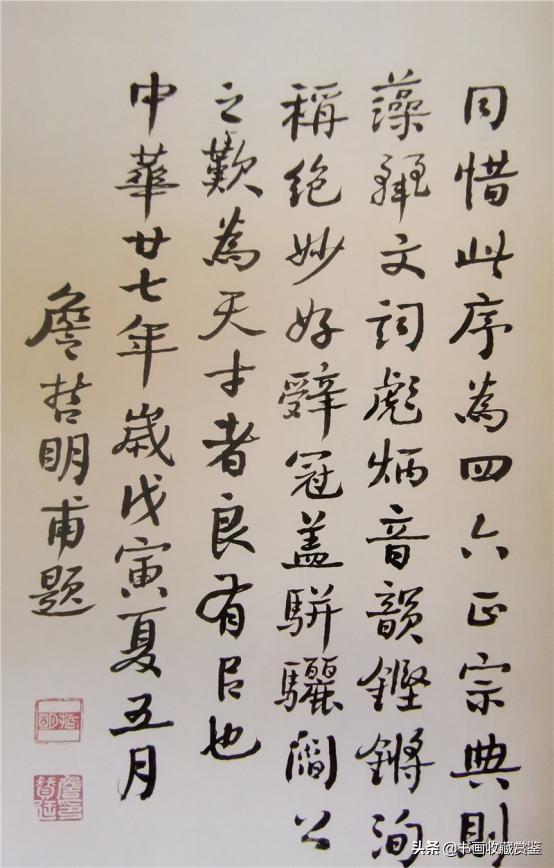 同惜此序為四六正宗典則
藻文詞彪炳音韻鏗鏘洵
稱絕妙好辭冠蓋駢驪閻公
之歎為天才者良有㠯也
中華廿七年歲戊寅夏五月
詹哲明甫題
哲明
头条 @书画收藏赏鉴